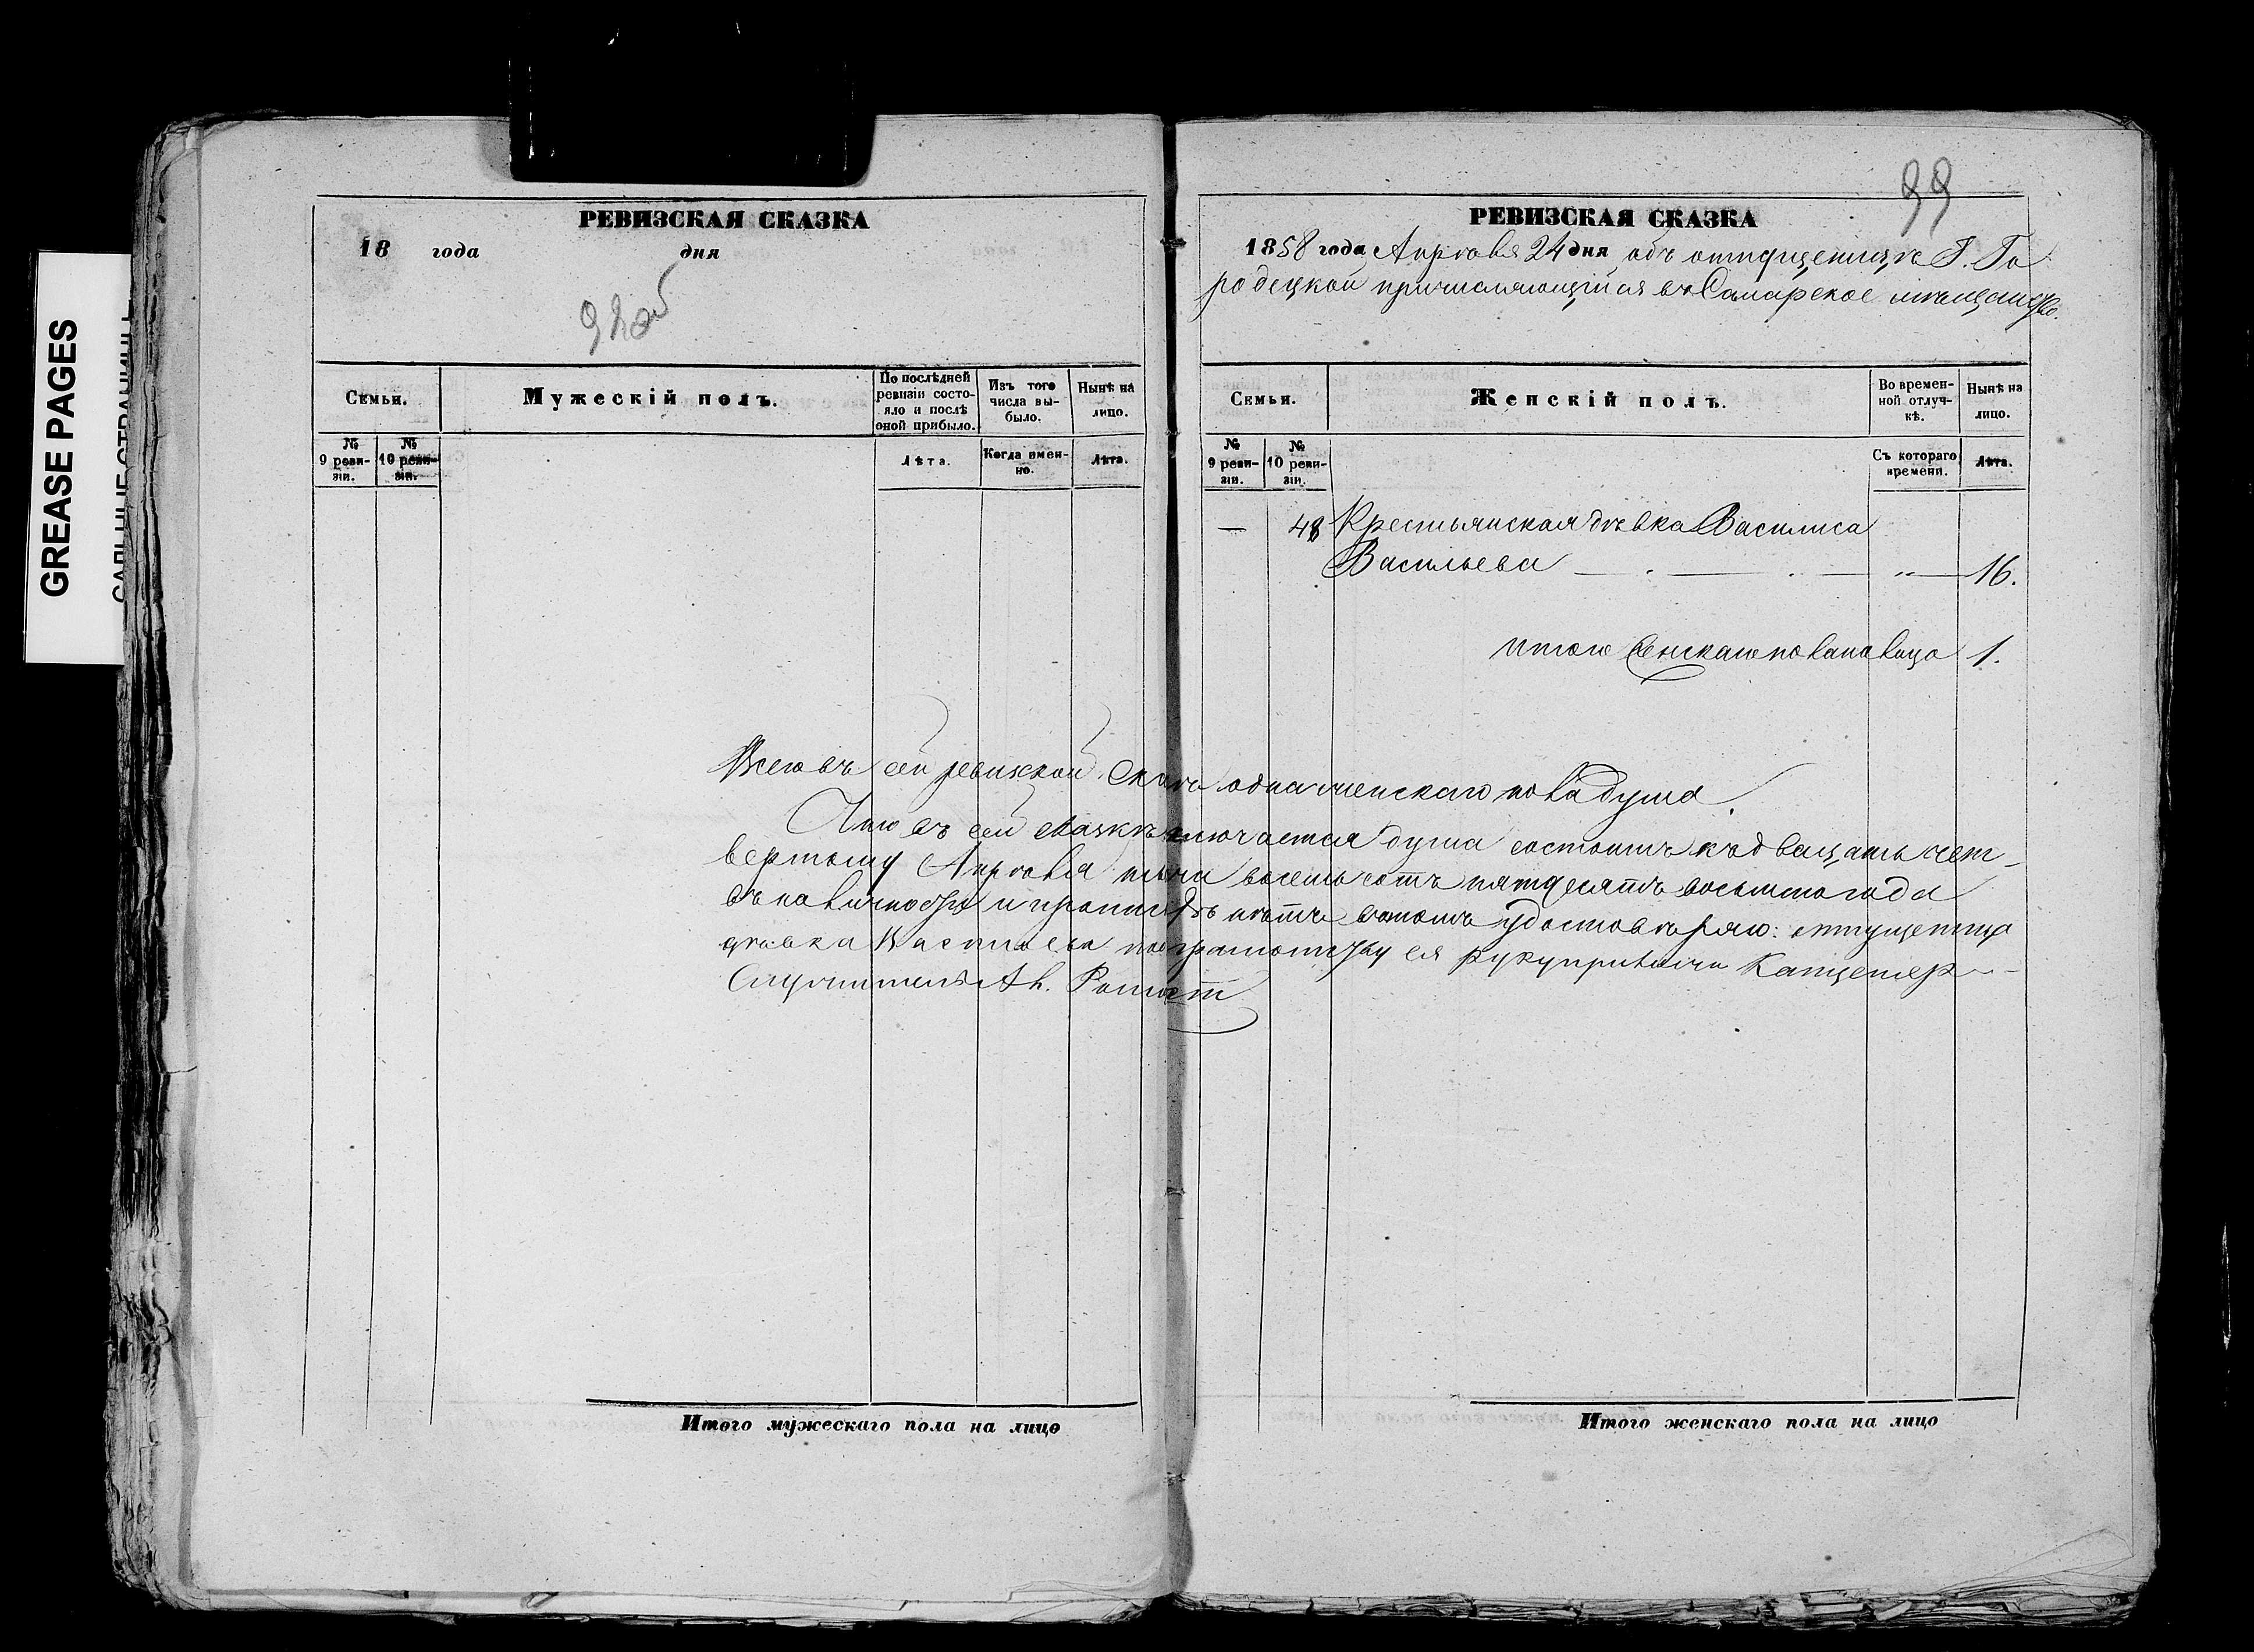 GREASE PAGES
РЕВИЗСКАЯ СКАЗКА
18 года дня
Семьи.
Мужескій полъ.
По послѣдней ревизіи состояло и послѣ оной прибыло.
Изъ того числа выбыло.
Нынѣ на лицо.
№ 9 ревизіи.
№ 10 ревизіи.
Лѣта.
Когда именно.
Лѣта.
Итого мужескаго пола на лицо
99
РЕВИЗСКАЯ СКАЗКА
1858 года Апрѣля 24 дня объ отпущенницѣ Г. Го
родецкой причисляющійся въ Самарское мѣщанство.
Семьи.
Женскій полъ.
Во временной отлучкѣ.
Нынѣ на лицо.
№ 9 ревизіи.
№ 10 ревизіи.
Съ котораго времени.
Лѣта.
— 48 Крестьянская дѣвка Василиса
Васильева — „ — 16.
Итого женскаго пола на лицо 1.
Всего въ сей ревизской сказкѣ одна женскаго пола душа.
Что въ сей сказкѣ значется душа состоитъ къ двацать чет-
вертому Апрѣля тысяча восемьсотъ пятдесятъ восьмого года
въ наличности и прописныхъ нѣтъ въ томъ удостовѣряю: отпущенница
дѣвка Васильева неграмотну ея руку приложилъ Канцеляр
Служитель
Итого женскаго пола на лицо